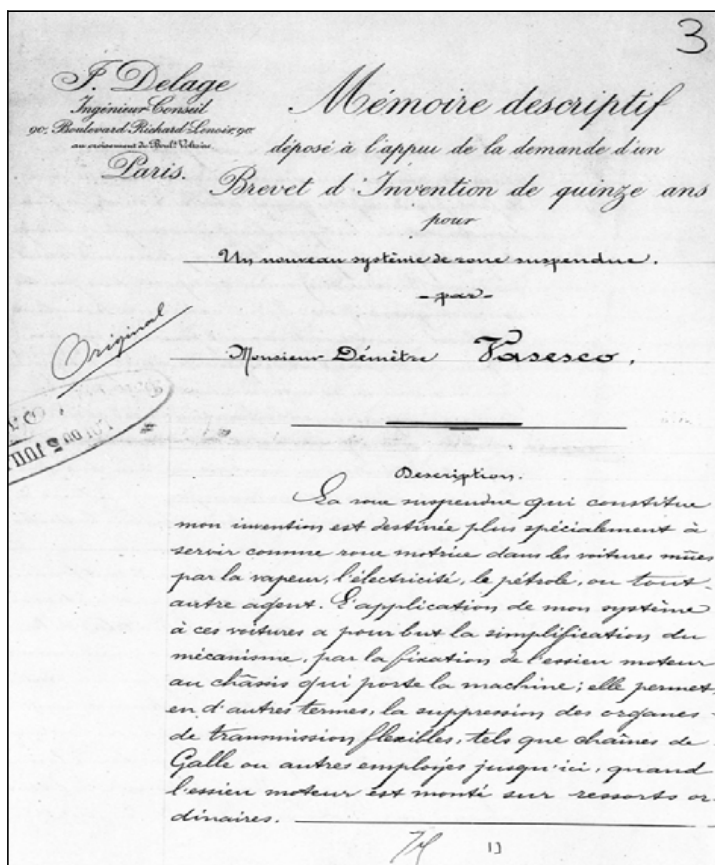 3
F. Delage
Ingénieur-Conseil
90, Boulevard Richard-Lenoir, 90
au croisement du Boulᵈ Voltaire
Paris.
Mémoire descriptif
déposé à l'appui de la demande d'un
Brevet d'Invention de quinze ans
pour
Un nouveau système de roue suspendue.
-par-
Original
Monsieur Démètre Vasesco.
Description.
La roue suspendue qui constitue
mon invention est destinée plus spécialement à
servir comme roue motrice dans les voitures mûes
par la vapeur, l'électricité, le pétrole, ou tout
autre agent. L'application de mon système
à ces voitures a pour but la simplification du
mécanisme, par la fixation de l'essieu moteur
au châssis qui porte la machine; elle permet,
en d'autres termes, la suppression des organes
de transmission flexibles, tels que chaînes de
Galle ou autres employés jusqu'ici, quand
l'essieu moteur est monté sur ressorts or-
dinaires.
13